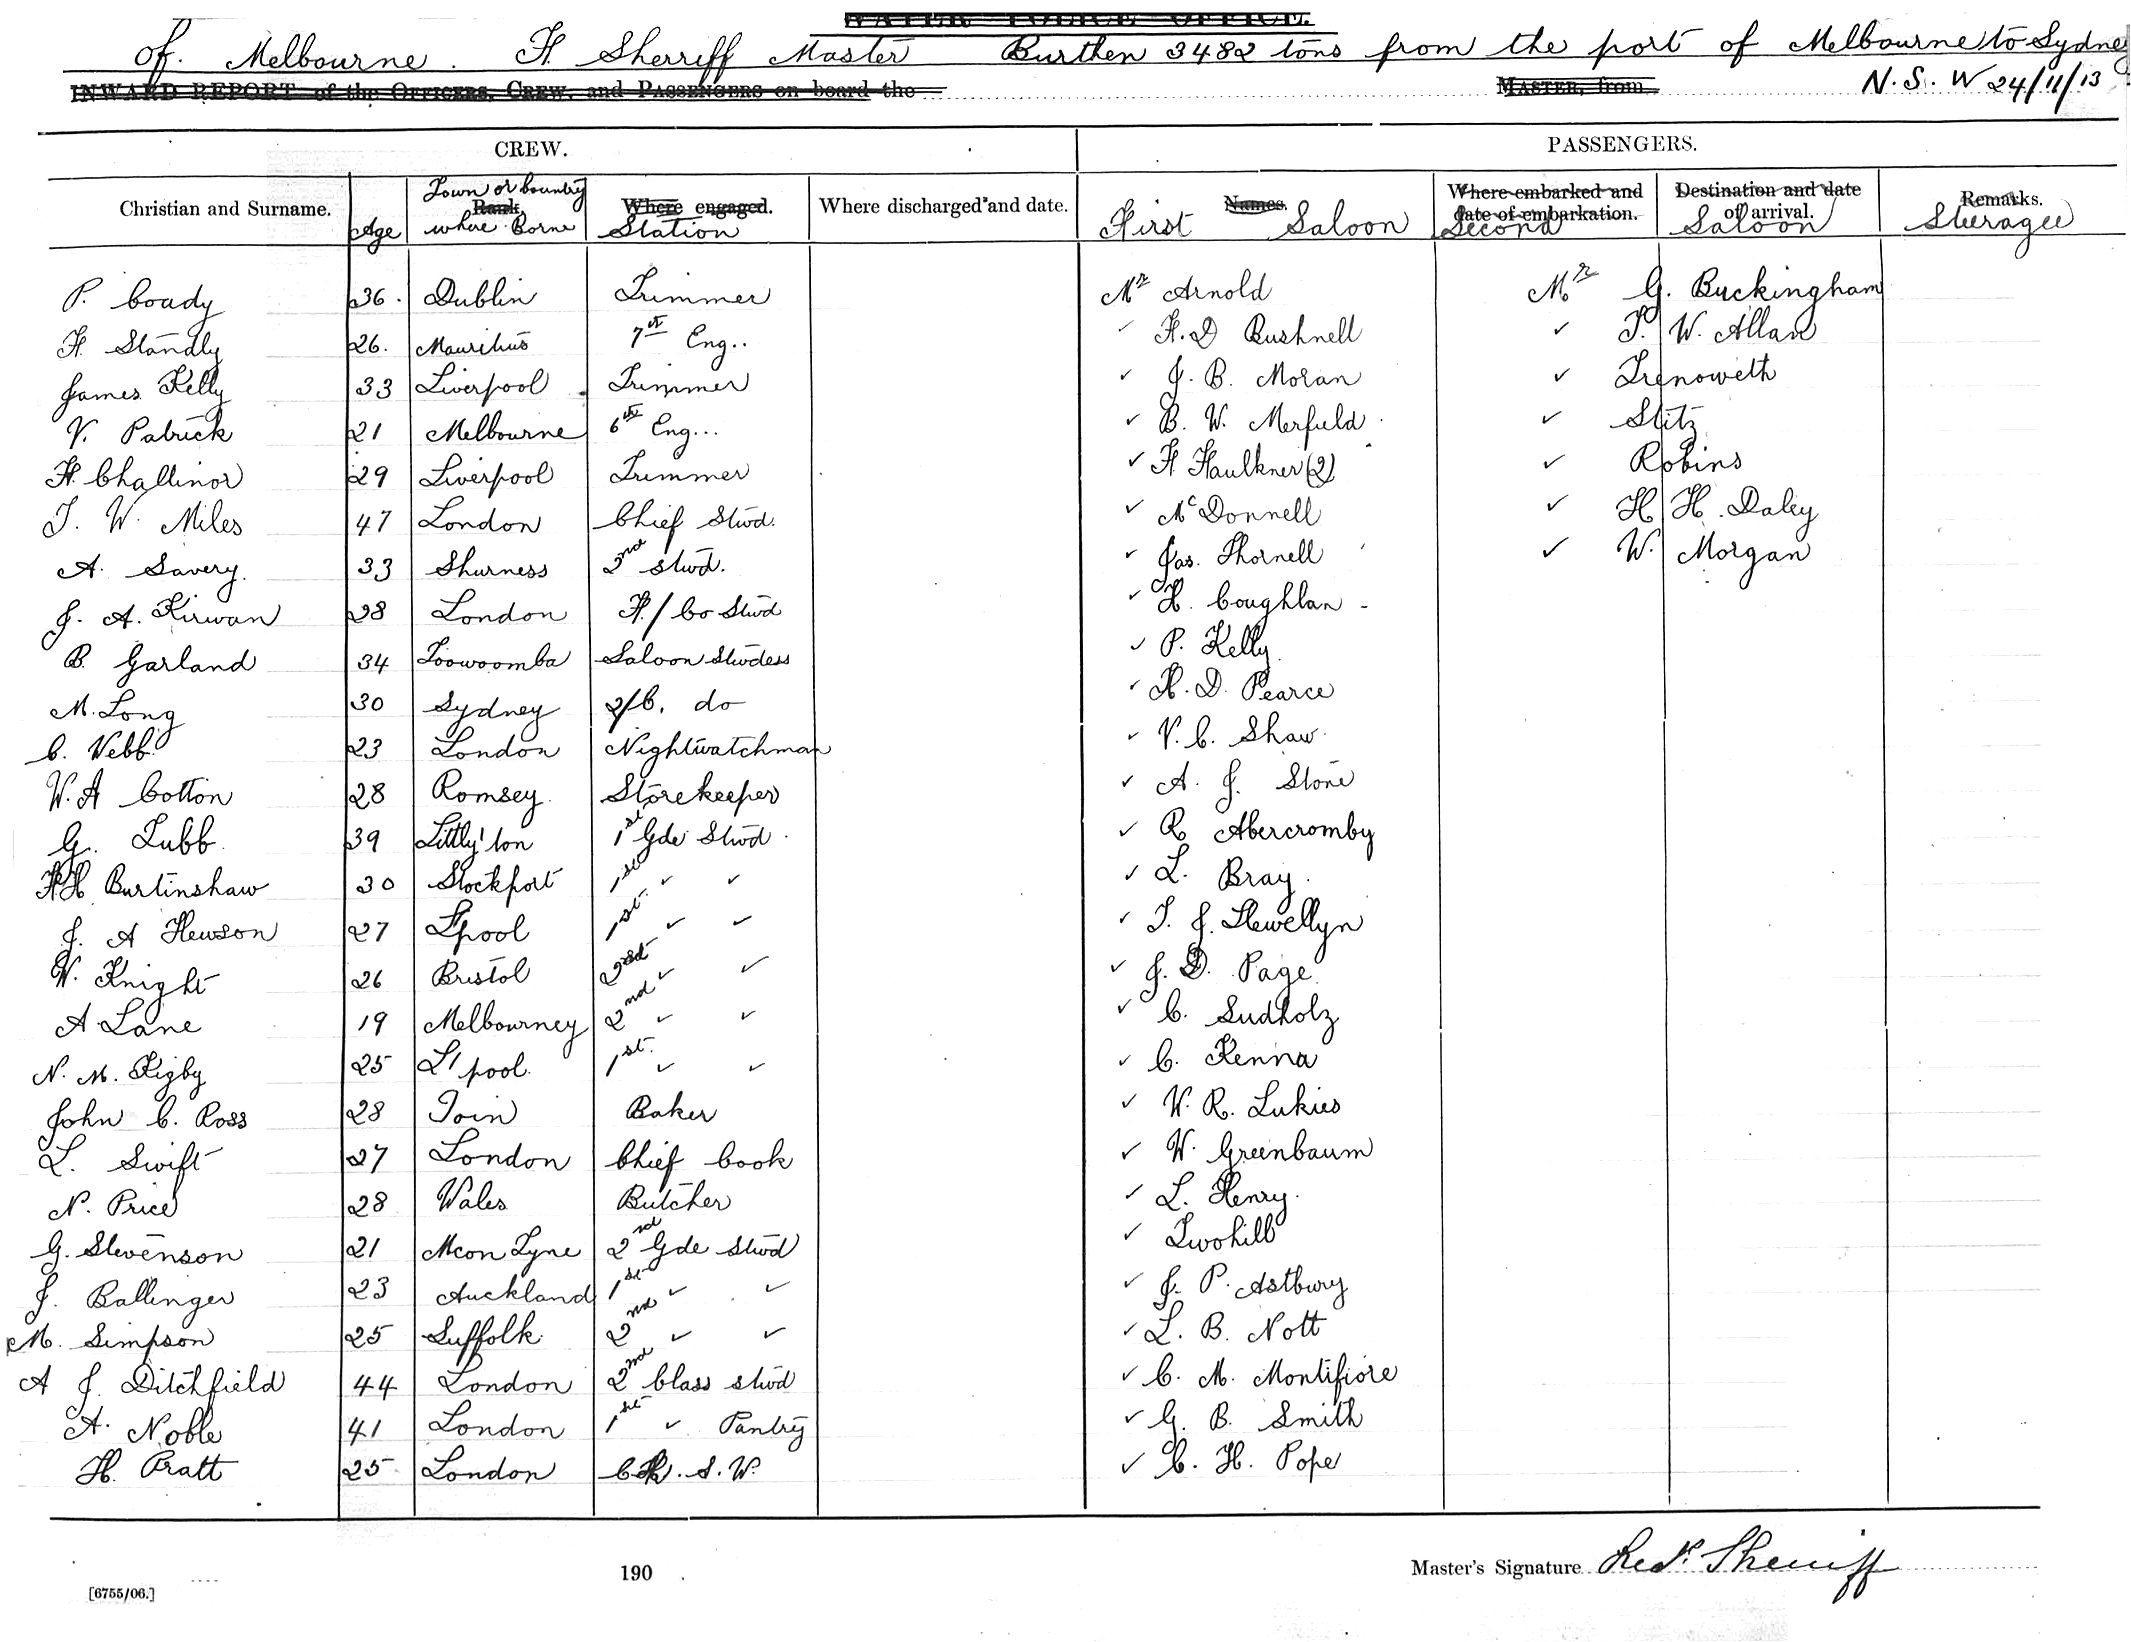 WATER POLICE OFFICE.
of Melbourne. F Sherriff Master Burthen 3482 tons from the port of Melbourne to Sydney
INWARD REPORT of the OFFICERS, CREW, and PASSENGERS on board the MASTER, from N.S.W 24/11/13
CREW. PASSENGERS.
Christian and Surname. Age Town or Country Rank where Borne Where engaged. Station Where discharged and date. Names. First Saloon Where embarked and date of embarkation. Second Destination and date of arrival. Saloon Remarks. Steerage
P. Coady 36. Dublin Trimmer Mr Arnold Mr G. Buckingham
F. Standly 26. Mauritius 7th Eng.. ✓ F. D Bushnell ✓ T. W. Allan
James Kelly 33 Liverpool Trimmer ✓ J. B. Moran ✓ Trenoweth
V. Patrick 21 Melbourne 6th Eng... ✓ B. W. Merfield ✓ Stitz
F. Challinor 29 Liverpool Trimmer ✓ F Faulkner (2) ✓ Robins
T. W. Miles 47 London Chief Stwd. ✓ McDonnell ✓ H H. Daley
A. Savery. 33 Shurness 2nd stwd. ✓ Jas. Thornell ✓ W. Morgan
J. A. Kirwan 28 London F./Co Stwd ✓ H. Coughlan
B. Garland 34 Toowoomba Saloon Stwdess ✓ P. Kelly
M. Long 30 Sydney 2/C. do ✓ H. D. Pearce
C. Vebb. 23 London Nightwatchman ✓ V. C. Shaw.
W. A Cotton 28 Romsey. Storekeeper ✓ A. J. Stone
G. Tubb. 39 Littly'ton 1st Gde Stwd. ✓ R Abercromby
FH Burtinshaw 30 Stockport 1st ✓ ✓ ✓ L. Bray.
J. A Hewson 27 L'pool 1st. ✓ ✓ ✓ T. J. Llewellyn
W. Knight 26 Bristol 2nd ✓ ✓ ✓ J. D. Page.
A Lane 19 Melbourney 2nd ✓ ✓ ✓ C. Sudholz
N. M. Rigby 25 L'pool. 1st. ✓ ✓ ✓ C. Kenna
John C. Ross 28 Toin Baker ✓ W. R. Lukies
L. Swift 27 London Chief Cook ✓ W. Greenbaum
N. Price 28 Wales Butcher ✓ L. Henry.
G. Stevenson 21 Mcon Tyne 2nd Gde Stwd ✓ Twohill
J. Ballinger 23 Auckland 1st ✓ ✓ ✓ J. P. Astbury
M. Simpson 25 Suffolk 2nd ✓ ✓ ✓ L. B. Nott
A J. Ditchfield 44 London 2nd Class stwd ✓ C. M. Montifiore
A. Noble 41 London 1st ✓ Pantry ✓ G. B. Smith
H. Pratt 25 London S. W. ✓ C. H. Pope
190 Master's Signature Sherriff
[6755/06.]